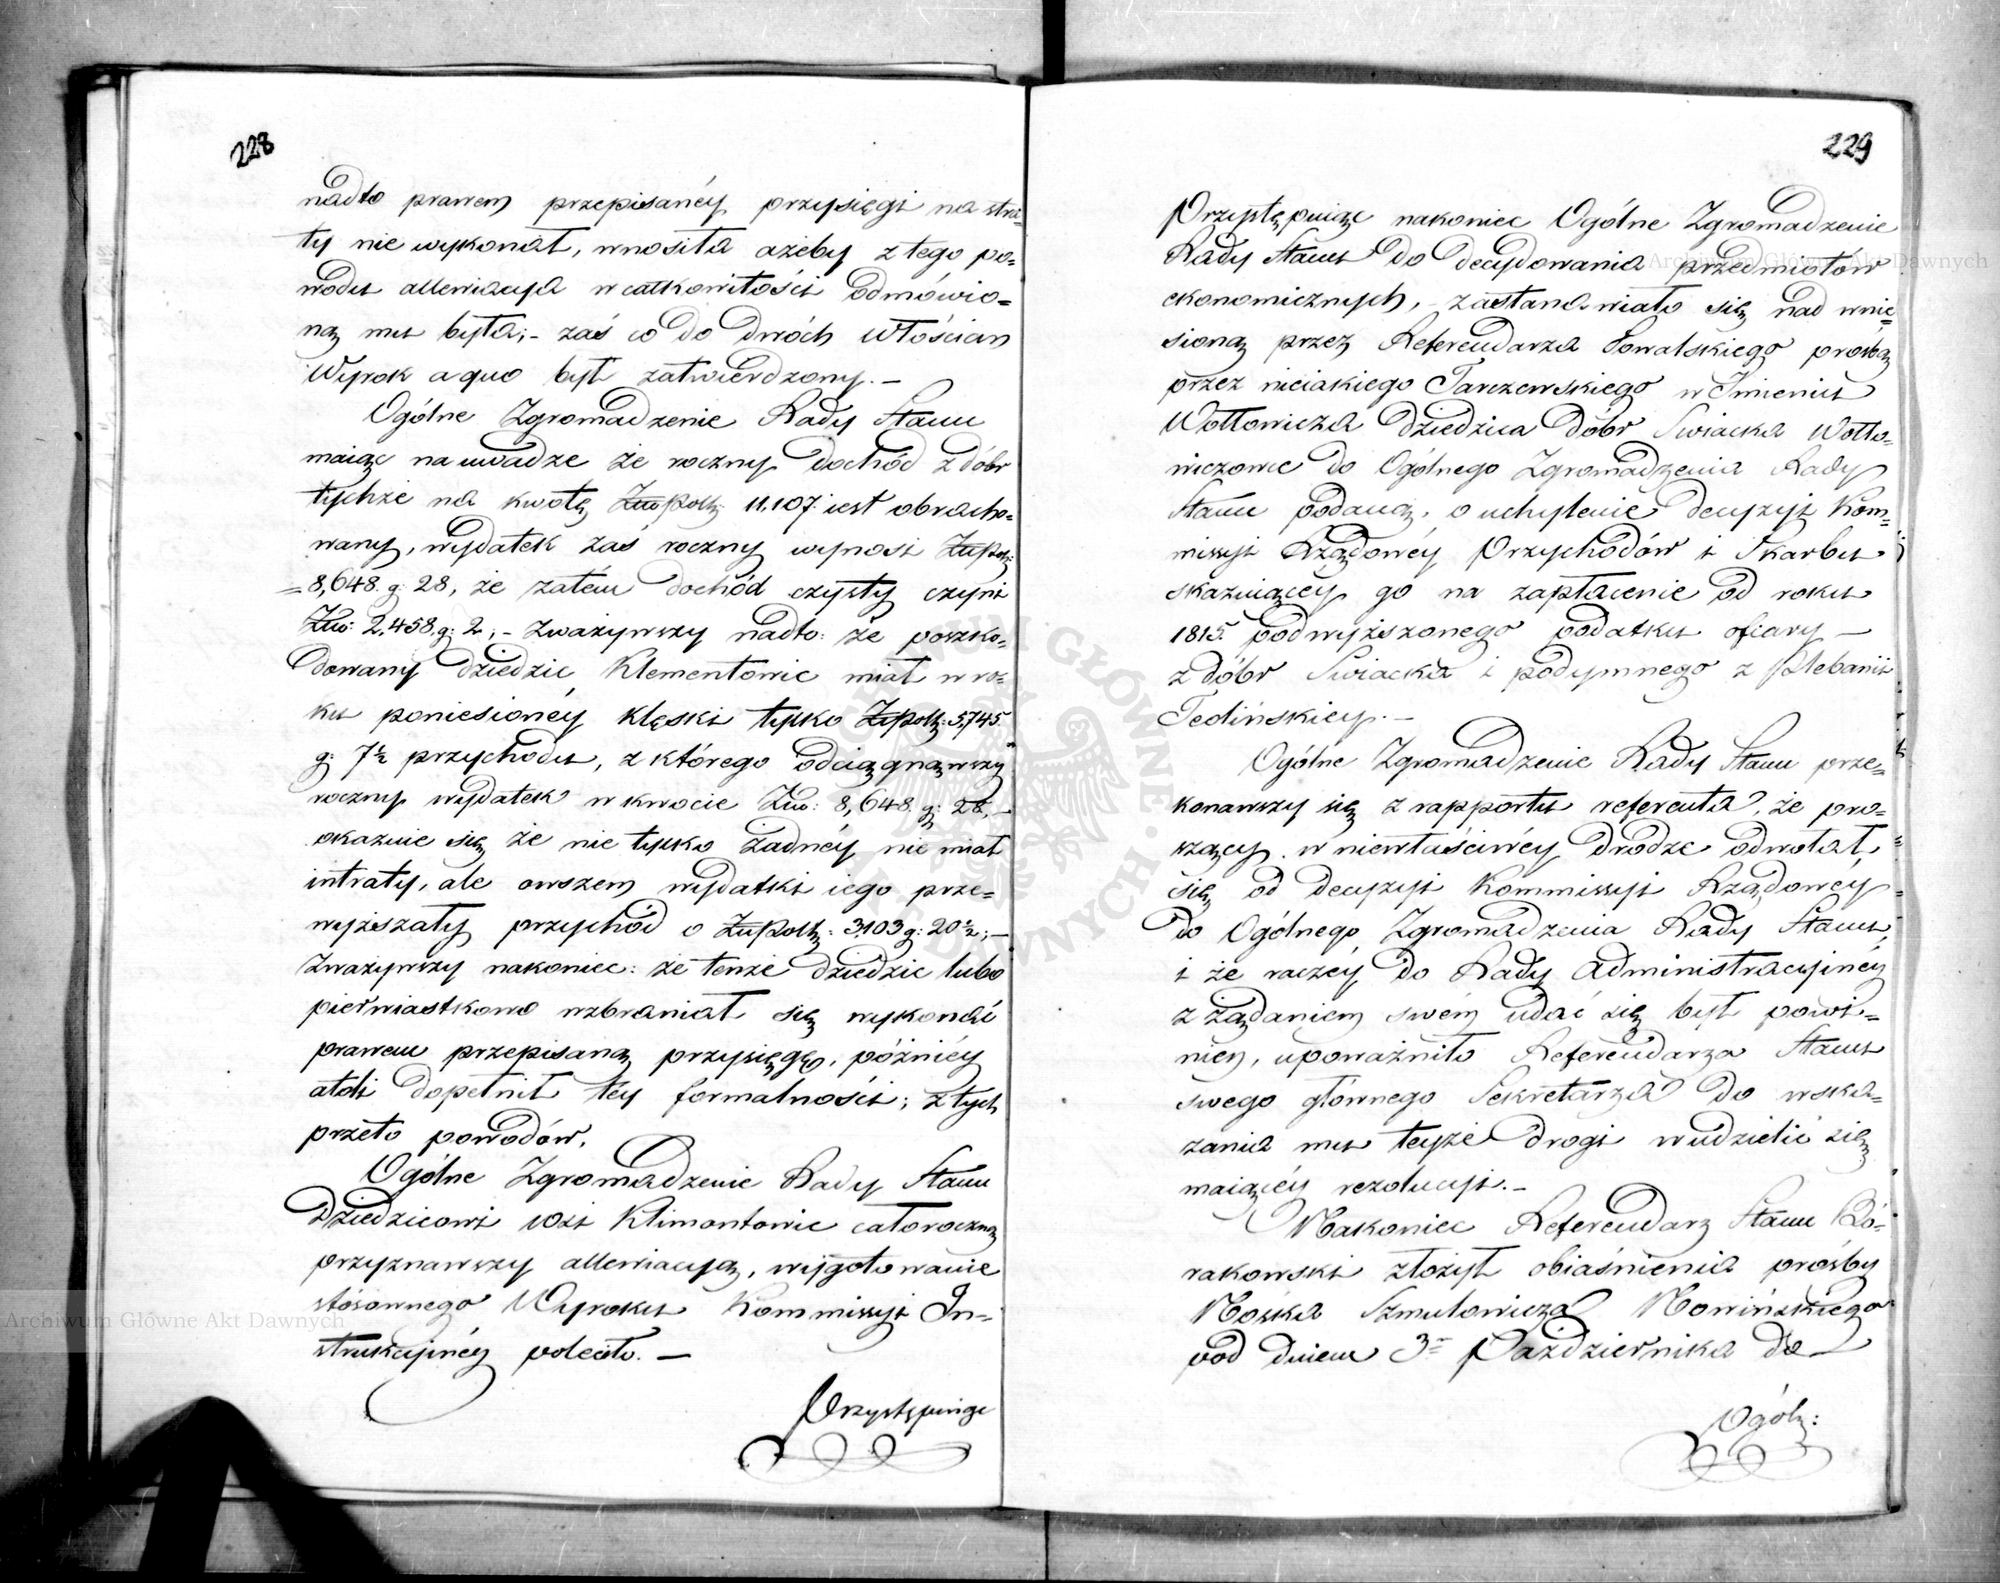 228
nadto prawem przepisanéy przysięgi na stra-
ty nie wykonał, wnosiła ażeby z tego po=
wodu allewiacya w całkowitości odmówio=
ną mu była; - zaś co do dwóch Włościan
Wyrok a quo był zatwierdzony. -
Ogólne Zgromadzenie Rady Stanu
maiąc na uwadze że roczny dochód z dóbr
tychże na kwotę Złpolk: 11,107 iest obracho=
wany, wydatek zaś roczny wynosi Złpolk:
= 8,648. g: 28, że zatém dochód czysty czyni
Złw: 2,458. g: 2; - zważywszy nadto: że poszko=
dowany dziedzic Klementowic miał w ro=
ku poniesionéy klęski tylko Złpolk: 5,745.
g: 7½ przychodu, z którego odciągnąwszy
roczny wydatek w kwocie Złw: 8,648 g: 28, -
okazuie się że nie tylko żadnéy nie miał
intraty, ale owszem wydatki iego prze=
wyższały przychód o Złpolk: 3103 g: 20½; -
Zważywszy nakoniec: że tenże dziedzic lubo
pierwiastkowo wzbraniał się wykonać
prawem przepisaną przysięgę, późniéy
atoli dopełnił téy formalności; z tych
przeto powodów,
Ogólne Zgromadzenie Rady Stanu
Dziedzicowi wsi Klimontowic całoroczną
przyznawszy allewiacyą, wygotowanie
stósownego Wyroku Kommissyi In-
strukcyinéy poleciło. -
Przystępuiąc
229
Przystępuiąc nakoniec Ogólne Zgromadzenie
Rady Stanu do decydowania przedmiotów
ekonomicznych, - zastanawiało się nad wnie=
sioną przez Referendarza Kowalskiego prośbą
przez nieiakiego Tarczewskiego w Imieniu
Wołłowicza Dziedzica Dóbr Swiacka Wołło=
wiczowec do Ogólnego Zgromadzenia Rady
Stanu podaną, o uchylenie decyzyi Kom=
missyi Rządowéy Przychodów i Skarbu
skazuiącéy go na zapłacenie od roku
1815. podwyższonego podatku ofiary -
z dóbr Swiacka i podymnego z Plebanii
Teolińskiey. -
Ogólne Zgromadzenie Rady Stanu prze=
konawszy się z rapportu referenta, że pro=
szący w niewłaściwéy drodze odwołał
się od decyzyi Kommissyi Rządowéy
do Ogólnego Zgromadzenia Rady Stanu,
i że raczéy do Rady Administracyinéy
z żądaniem swém udać się był powi=
nien, upoważniło Referendarza Stanu
swego głównego Sekretarza do wska=
zania mu teyże drogi w udzielić się
maiącéy rezolucyi. -
Nakoniec Referendarz Stanu Ró=
rakowski złożył obiaśnienia prośby
Mośka Szmulowicza Nowińskiego
pod dniem 3= Października do
Ogóln:
Archiwum Główne Akt Dawnych
Archiwum Główne Akt Dawnych
ARCHIWUM GŁÓWNE AKT DAWNYCH